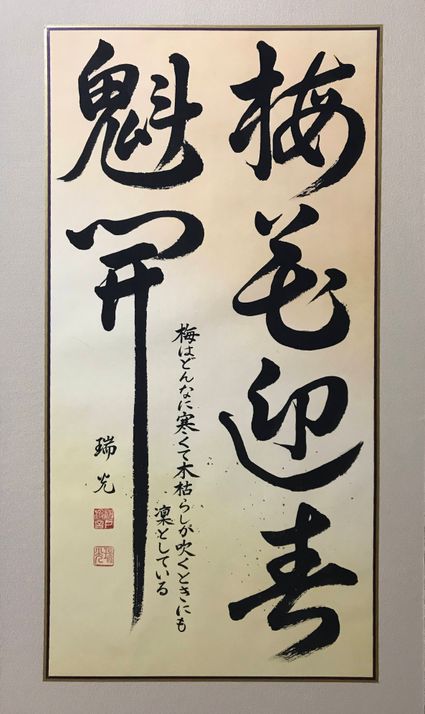 梅花迎春
魁開
梅はどんなに寒くて木枯らしが吹くときにも
凜としている
瑞光